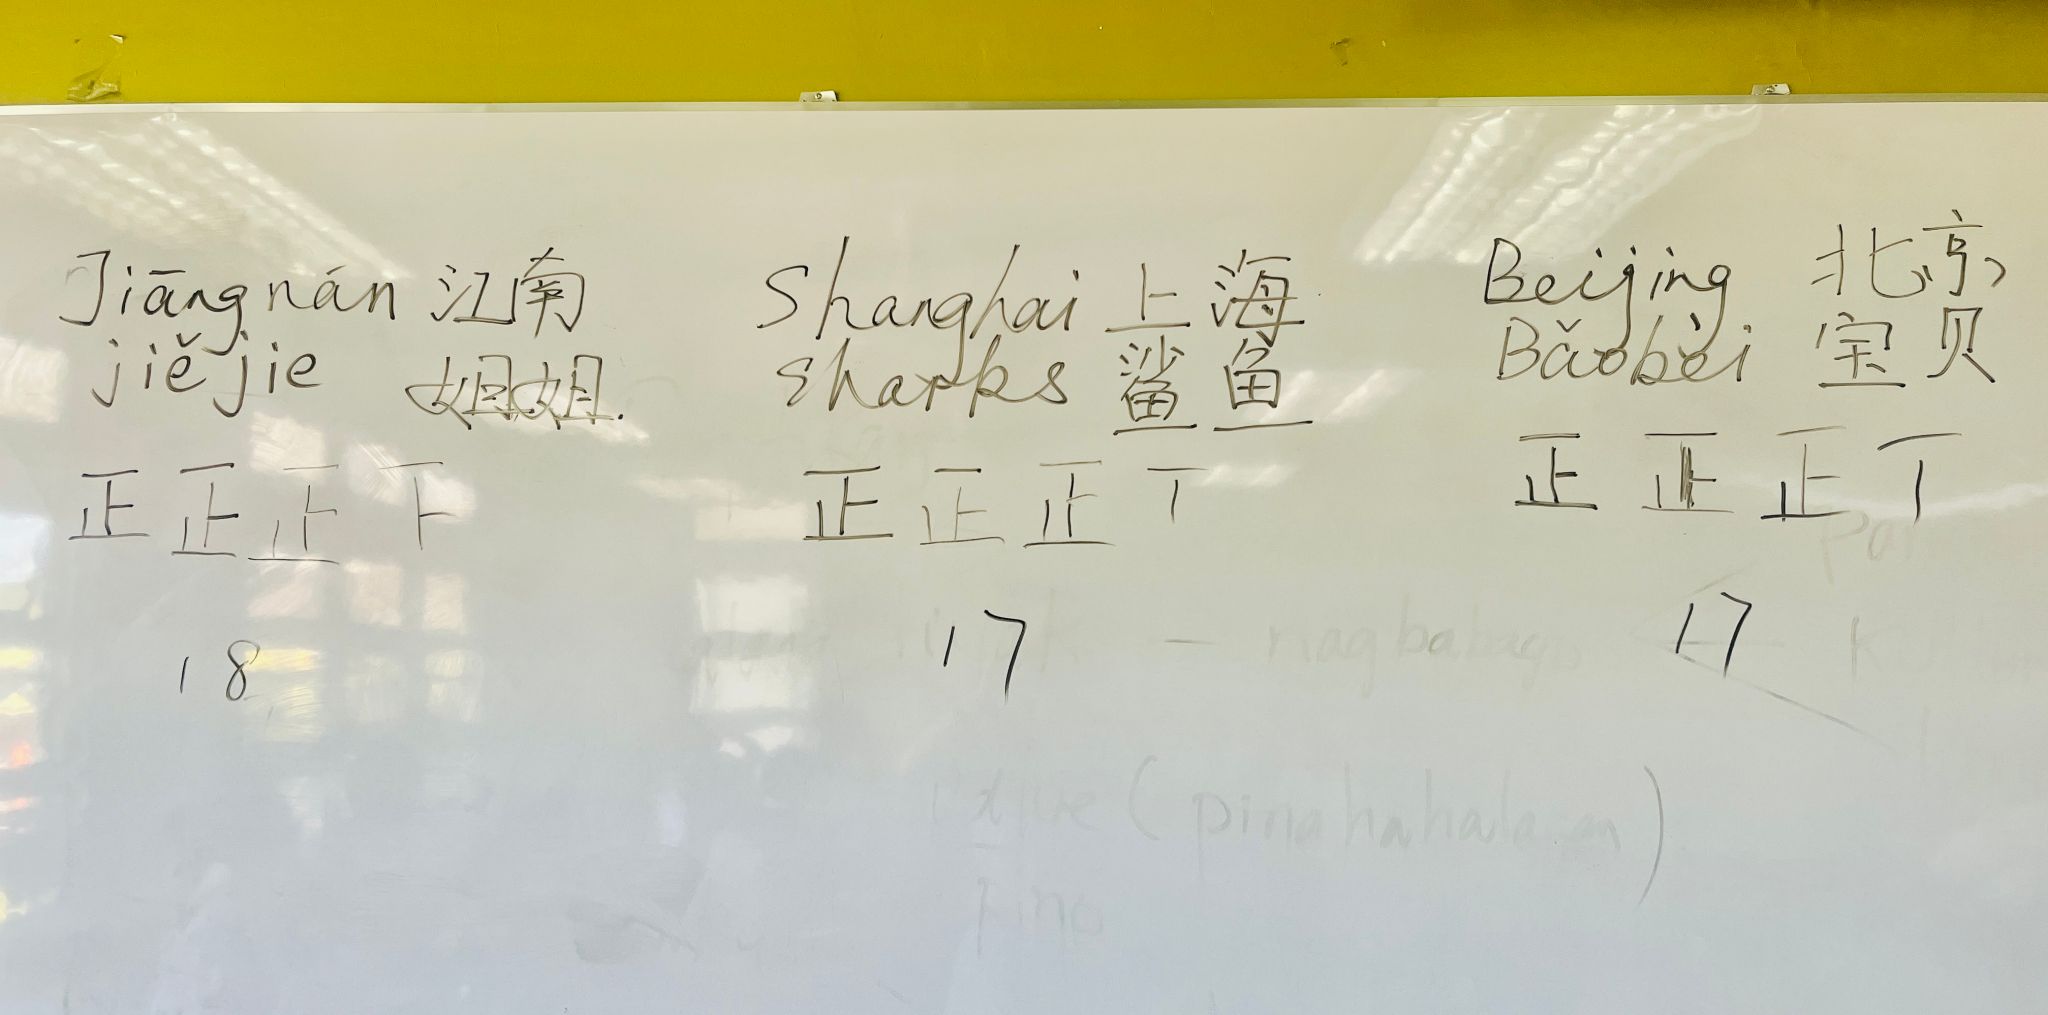 Jiāngnán 江南
jiějie 姐姐.
正正正下
18
Shanghai 上海
sharks 鲨鱼
正正正丅
17
Beijing 北京
Bǎobèi 宝贝
正正正丅
17
(pinahahalagaan)